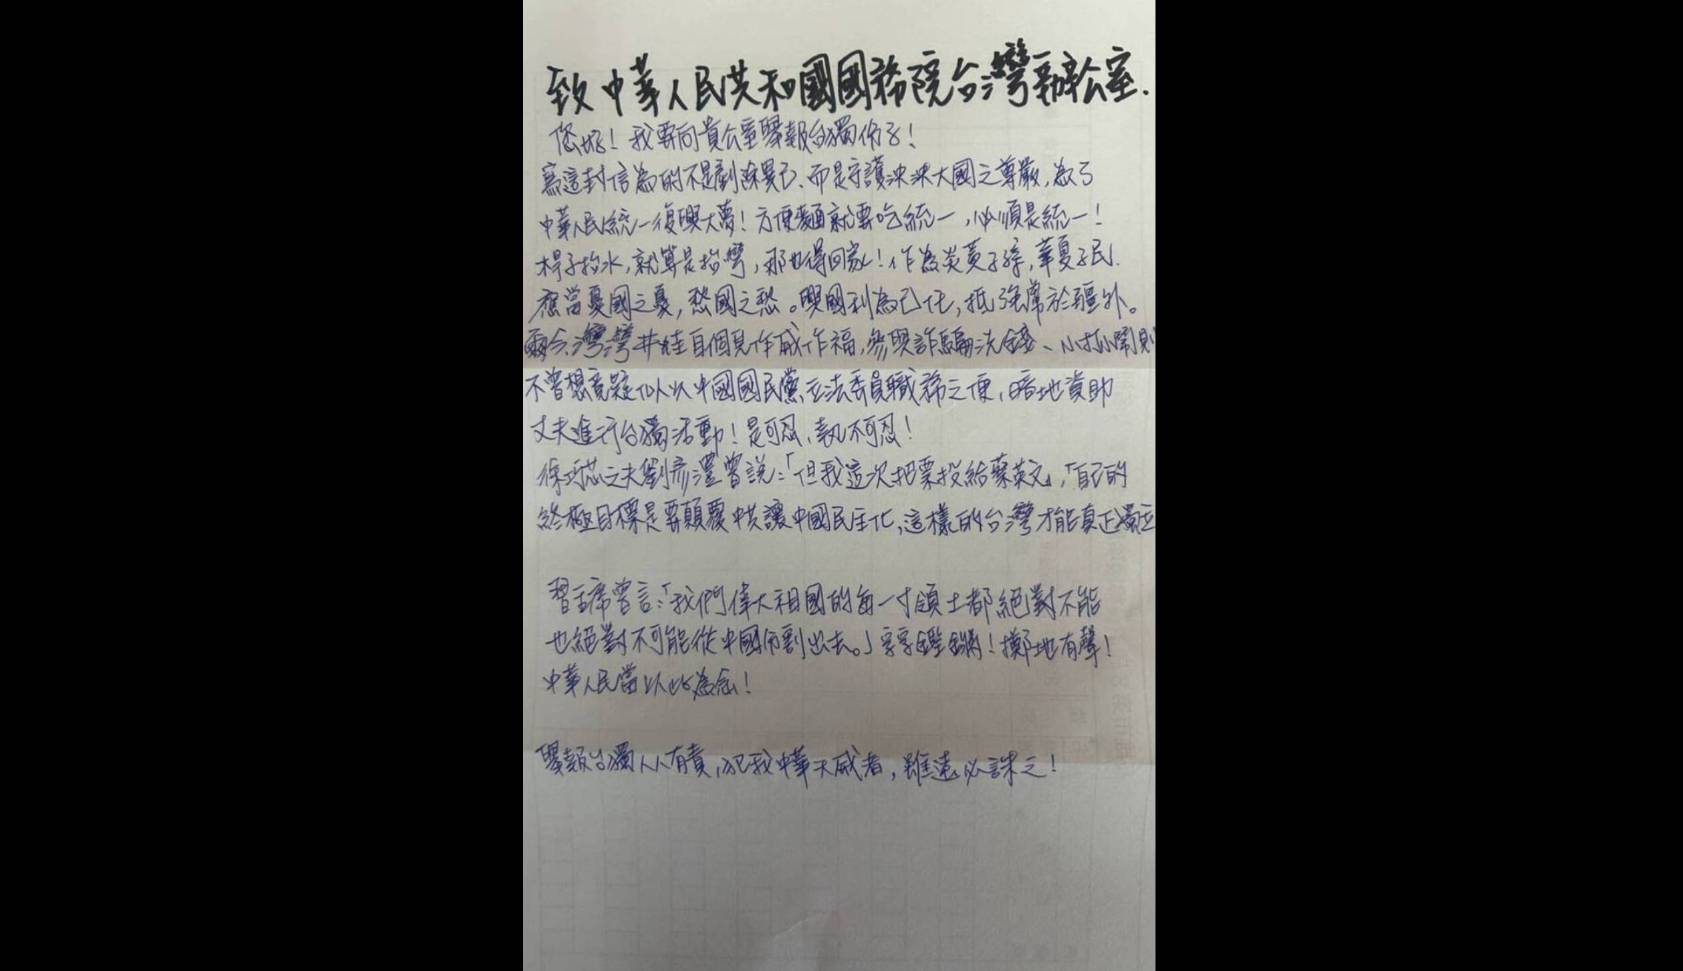 致中華人民共和國國務院台灣辦公室.
您好！我要向貴公室舉報台獨份子！
寫這封信為的不是剷除異己、而是守護泱泱大國之尊嚴,為了
中華人民統一復興大夢！方便麵就要吃統一,必須是統一！
桿子抬水,就算是抬彎,那也得回家！作為炎黃子孫,華夏子民.
應當憂國之憂,愁國之愁。興國利為己任,抵強虜於疆外。
而今灣灣井蛙自個兒作威作福,參與詐騙洗錢、小打小鬧則
不曾想竟疑似以中國國民黨立法委員職務之便,暗地資助
丈夫進行台獨活動！是可忍,孰不可忍！
徐巧芯之夫劉彥澧曾說:「但我這次把票投給蔡英文」,「自己的
終極目標是要顛覆中共讓中國民主化,這樣的台灣才能真正獨立
習主席曾言:「我們偉大祖國的每一寸領土都絕對不能
也絕對不可能從中國分割出去。」字字鏗鏘！擲地有聲！
中華人民當以此為念！
舉報台獨人人有責,犯我中華天威者,雖遠必誅之！